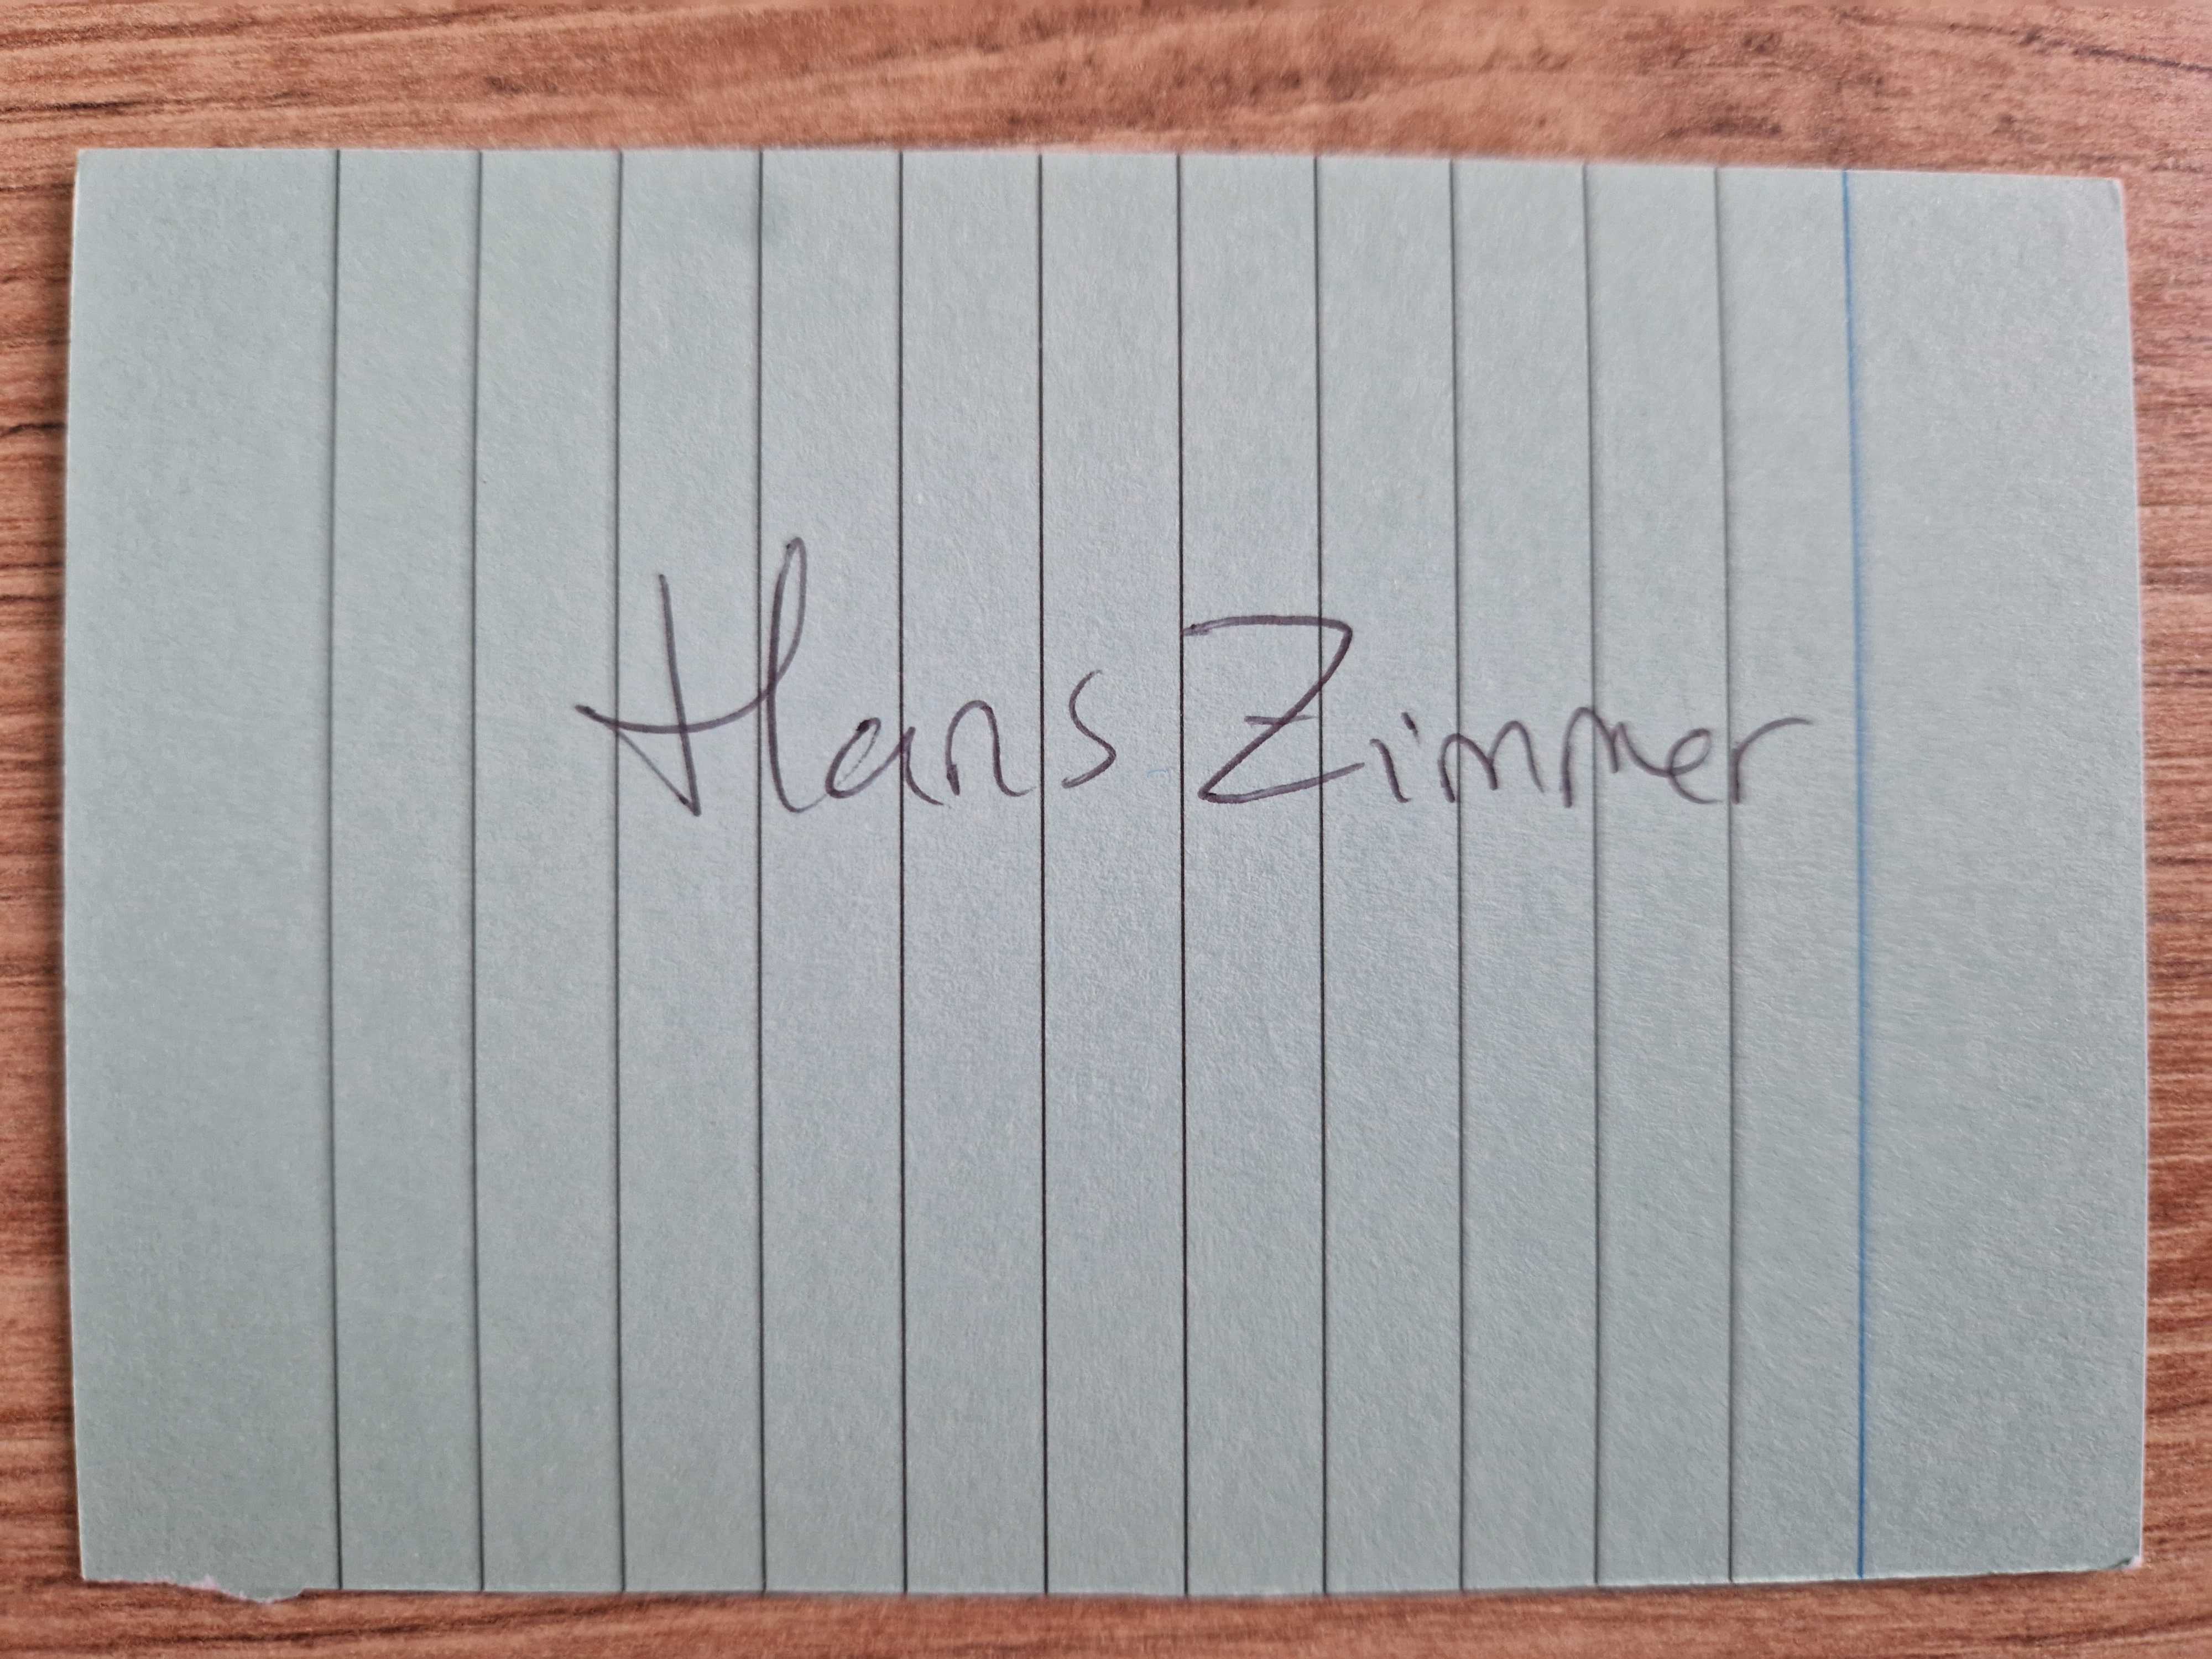 Hans Zimmer